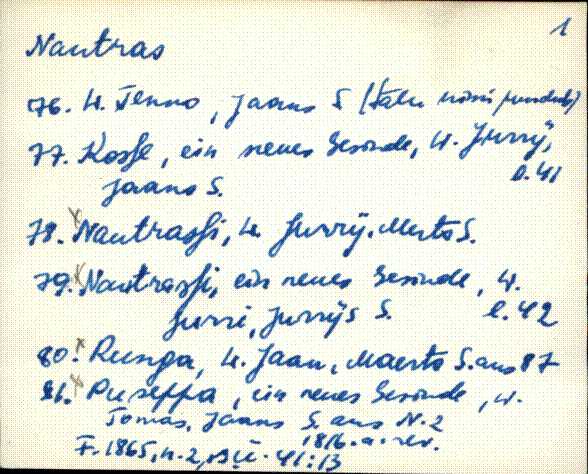 1
Nautras
76. W. Tenno, Jaans S. (talu nimi puudub)
77. Kosse, ein neues Gesinde, W. Jurrÿ,
Jaans S. l. 41
78. Nautrassi, W. Jurrÿ, Merto S.
79. Nautrassi, ein neues Gesinde, W.
Jurri, Jurrÿs S. l. 42
80. Runga, W. Jaan, Maerto S. aus 87
81. Puseppa, ein neues Gesinde, W.
Tomas, Jaans S. aus N. 2
1816. a. rev.
F. 1865, n. 2, 41:13